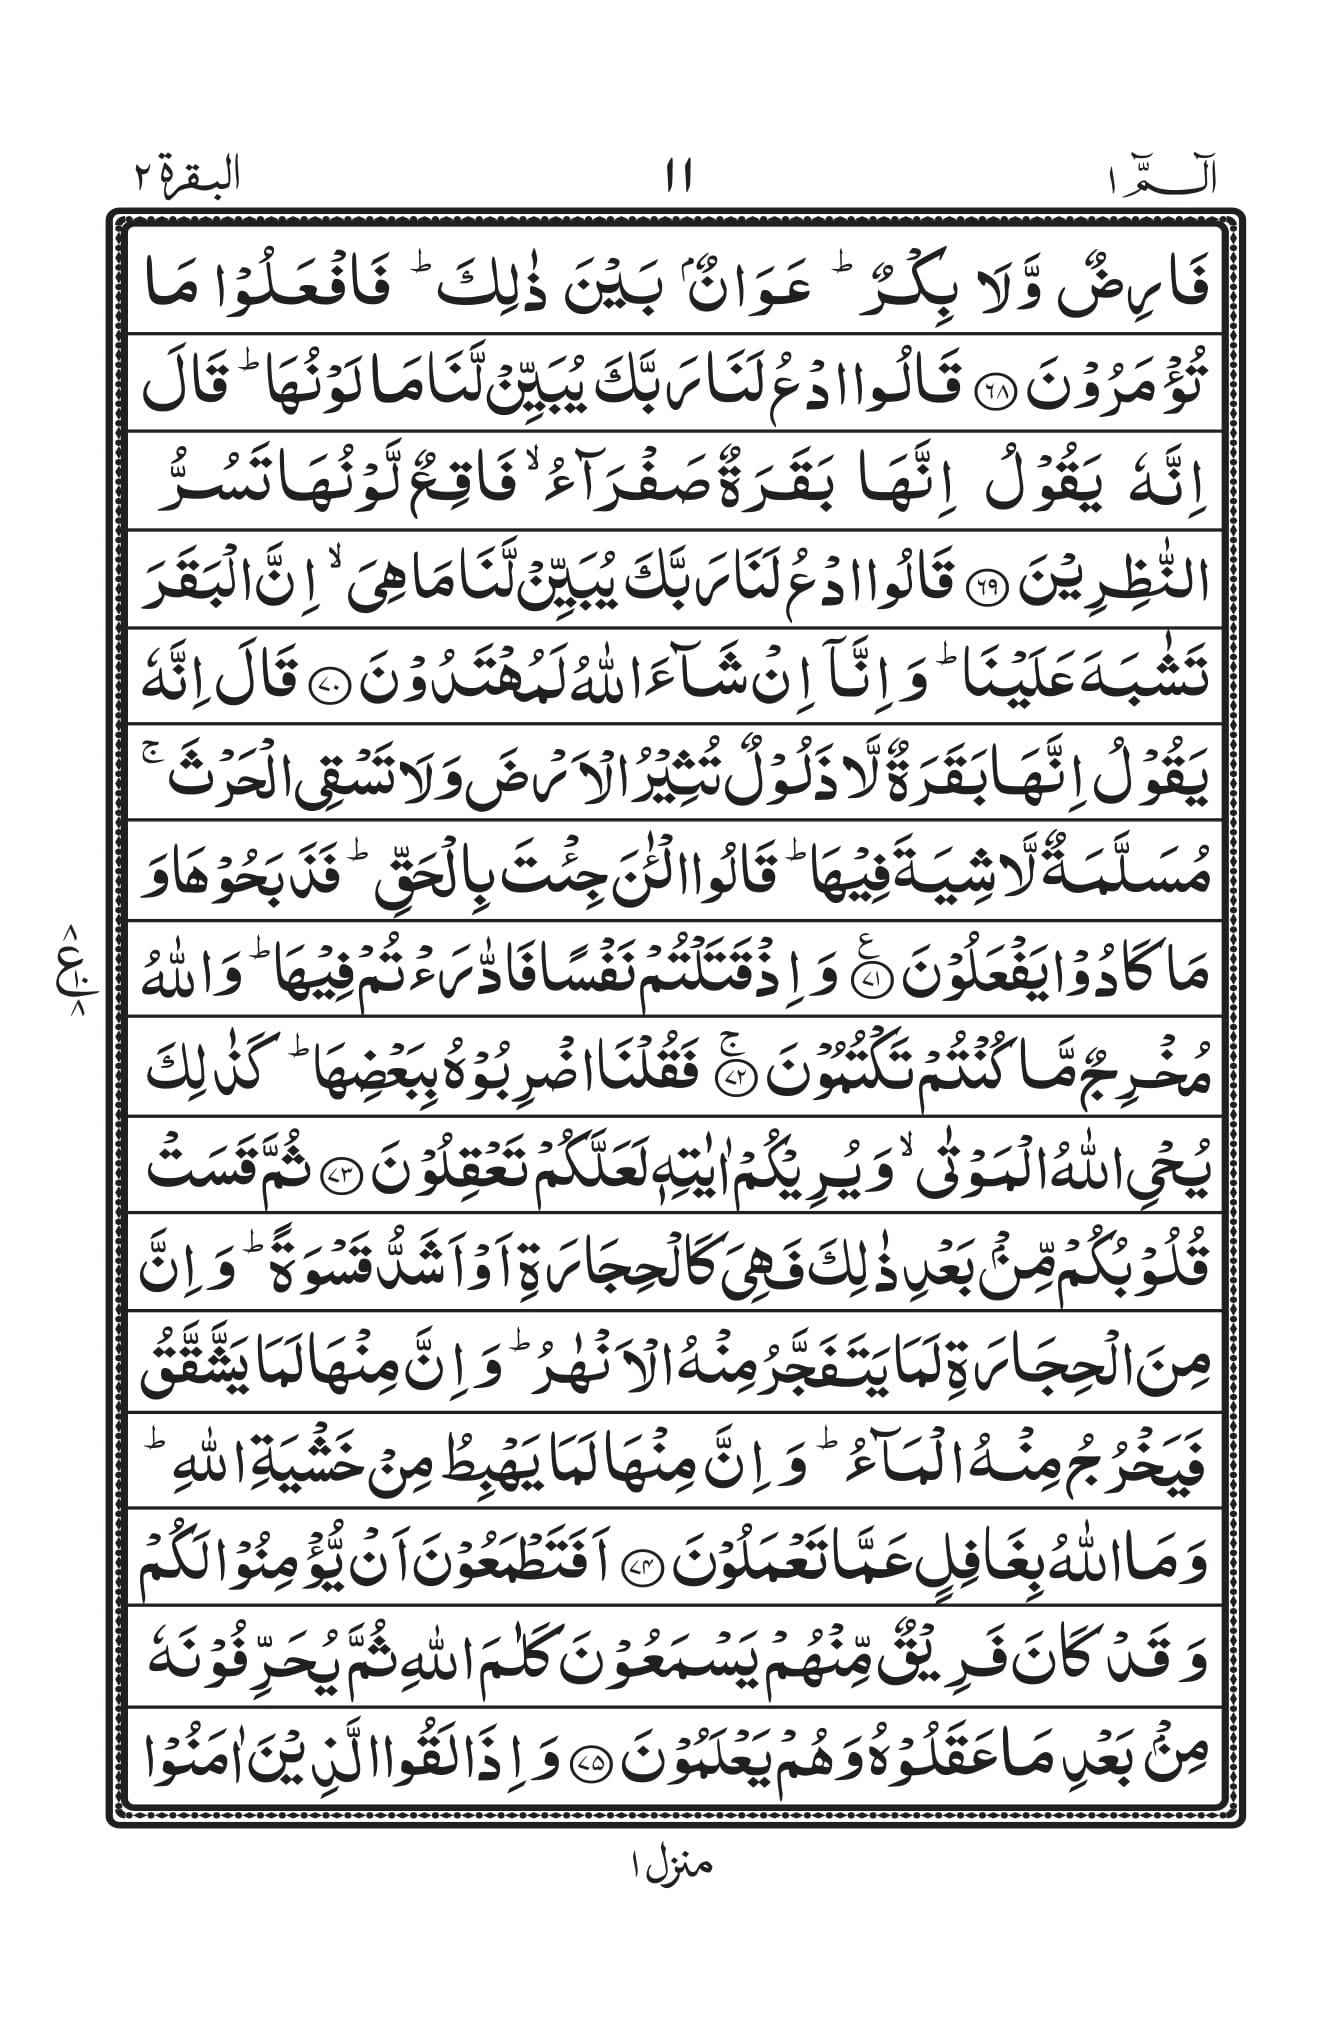 الٓـمّٓ ١ ١١ البقرة ٢
فَارِضٌ وَّلَا بِكْرٌ ؕ عَوَانٌۢ بَيْنَ ذٰلِكَ ؕ فَافْعَلُوْا مَا
تُؤْمَرُوْنَ ﴿۶۸﴾ قَالُوا ادْعُ لَنَا رَبَّكَ يُبَيِّنْ لَّنَا مَا لَوْنُهَا ؕ قَالَ
اِنَّهٗ يَقُوْلُ اِنَّهَا بَقَرَةٌ صَفْرَآءُ ۙ فَاقِعٌ لَّوْنُهَا تَسُرُّ
النّٰظِرِيْنَ ﴿۶۹﴾ قَالُوا ادْعُ لَنَا رَبَّكَ يُبَيِّنْ لَّنَا مَا هِيَ ۙ اِنَّ الْبَقَرَ
تَشٰبَهَ عَلَيْنَا ؕ وَ اِنَّاۤ اِنْ شَآءَ اللّٰهُ لَمُهْتَدُوْنَ ﴿۷۰﴾ قَالَ اِنَّهٗ
يَقُوْلُ اِنَّهَا بَقَرَةٌ لَّا ذَلُوْلٌ تُثِيْرُ الْاَرْضَ وَلَا تَسْقِى الْحَرْثَ ۚ
مُسَلَّمَةٌ لَّا شِيَةَ فِيْهَا ؕ قَالُوا الْـٰٔنَ جِئْتَ بِالْحَقِّ ؕ فَذَبَحُوْهَا وَ
مَا كَادُوْا يَفْعَلُوْنَ ﴿۷۱﴾ ع وَ اِذْ قَتَلْتُمْ نَفْسًا فَادّٰرَءْتُمْ فِيْهَا ؕ وَ اللّٰهُ
۸ ع ۱۰ ۸
مُخْرِجٌ مَّا كُنْتُمْ تَكْتُمُوْنَ ﴿۷۲﴾ ۚ فَقُلْنَا اضْرِبُوْهُ بِبَعْضِهَا ؕ كَذٰلِكَ
يُحْىِ اللّٰهُ الْمَوْتٰى ۙ وَ يُرِيْكُمْ اٰيٰتِهٖ لَعَلَّكُمْ تَعْقِلُوْنَ ﴿۷۳﴾ ثُمَّ قَسَتْ
قُلُوْبُكُمْ مِّنْۢ بَعْدِ ذٰلِكَ فَهِيَ كَالْحِجَارَةِ اَوْ اَشَدُّ قَسْوَةً ؕ وَ اِنَّ
مِنَ الْحِجَارَةِ لَمَا يَتَفَجَّرُ مِنْهُ الْاَنْهٰرُ ؕ وَ اِنَّ مِنْهَا لَمَا يَشَّقَّقُ
فَيَخْرُجُ مِنْهُ الْمَآءُ ؕ وَ اِنَّ مِنْهَا لَمَا يَهْبِطُ مِنْ خَشْيَةِ اللّٰهِ ؕ
وَ مَا اللّٰهُ بِغَافِلٍ عَمَّا تَعْمَلُوْنَ ﴿۷۴﴾ اَفَتَطْمَعُوْنَ اَنْ يُّؤْمِنُوْا لَكُمْ
وَ قَدْ كَانَ فَرِيْقٌ مِّنْهُمْ يَسْمَعُوْنَ كَلٰمَ اللّٰهِ ثُمَّ يُحَرِّفُوْنَهٗ
مِنْۢ بَعْدِ مَا عَقَلُوْهُ وَهُمْ يَعْلَمُوْنَ ﴿۷۵﴾ وَ اِذَا لَقُوا الَّذِيْنَ اٰمَنُوْا
منزل ١